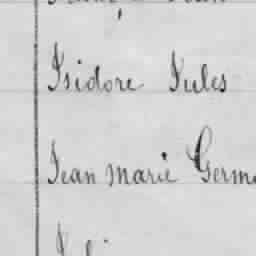 Isidore Jules
Jean marie Germ